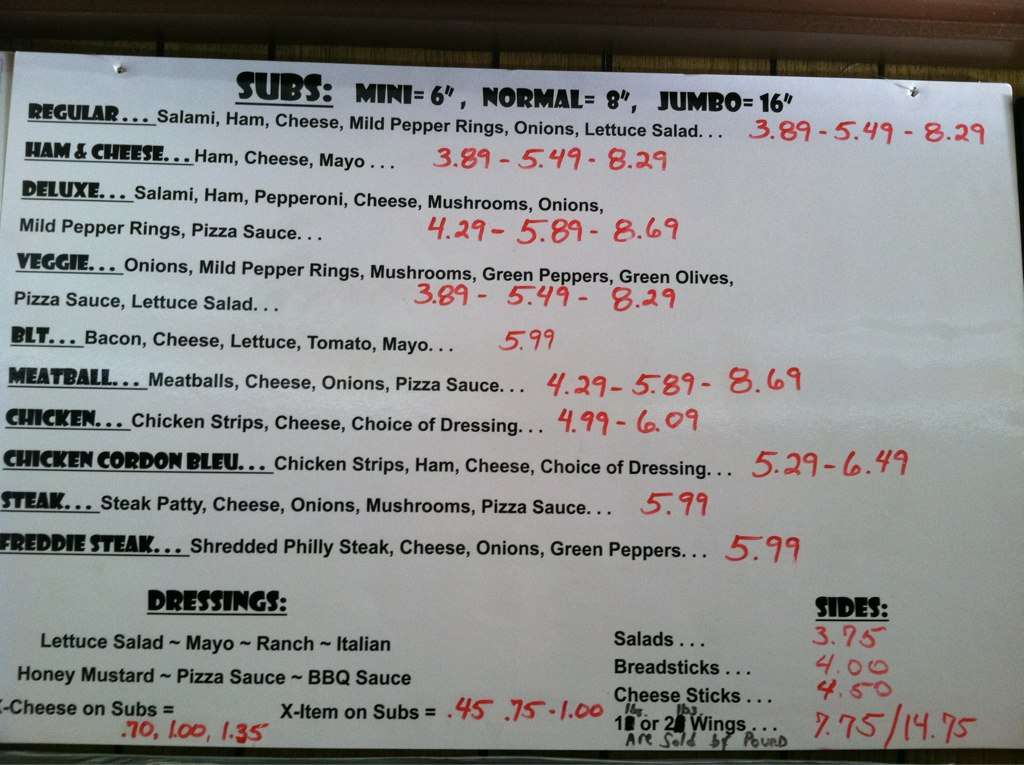 SUBS: MINI= 6", NORMAL= 8", JUMBO= 16"
REGULAR... Salami, Ham, Cheese, Mild Pepper Rings, Onions, Lettuce Salad... 3.89 - 5.49 - 8.29
HAM & CHEESE... Ham, Cheese, Mayo... 3.89 - 5.49 - 8.29
DELUXE... Salami, Ham, Pepperoni, Cheese, Mushrooms, Onions,
Mild Pepper Rings, Pizza Sauce... 4.29 - 5.89 - 8.69
VEGGIE... Onions, Mild Pepper Rings, Mushrooms, Green Peppers, Green Olives,
Pizza Sauce, Lettuce Salad... 3.89 - 5.49 - 8.29
BLT... Bacon, Cheese, Lettuce, Tomato, Mayo... 5.99
MEATBALL... Meatballs, Cheese, Onions, Pizza Sauce... 4.29 - 5.89 - 8.69
CHICKEN... Chicken Strips, Cheese, Choice of Dressing... 4.99 - 6.09
CHICKEN CORDON BLEU... Chicken Strips, Ham, Cheese, Choice of Dressing... 5.29 - 6.49
STEAK... Steak Patty, Cheese, Onions, Mushrooms, Pizza Sauce... 5.99
FREDDIE STEAK... Shredded Philly Steak, Cheese, Onions, Green Peppers... 5.99
DRESSINGS:
Lettuce Salad ~ Mayo ~ Ranch ~ Italian
Honey Mustard ~ Pizza Sauce ~ BBQ Sauce
X-Cheese on Subs =
.70, 1.00, 1.35
X-Item on Subs = .45 .75 - 1.00
SIDES:
Salads... 3.75
Breadsticks... 4.00
Cheese Sticks... 4.50
1 lb. or 2 lbs. Wings... 7.75/14.75
Are Sold by Pound